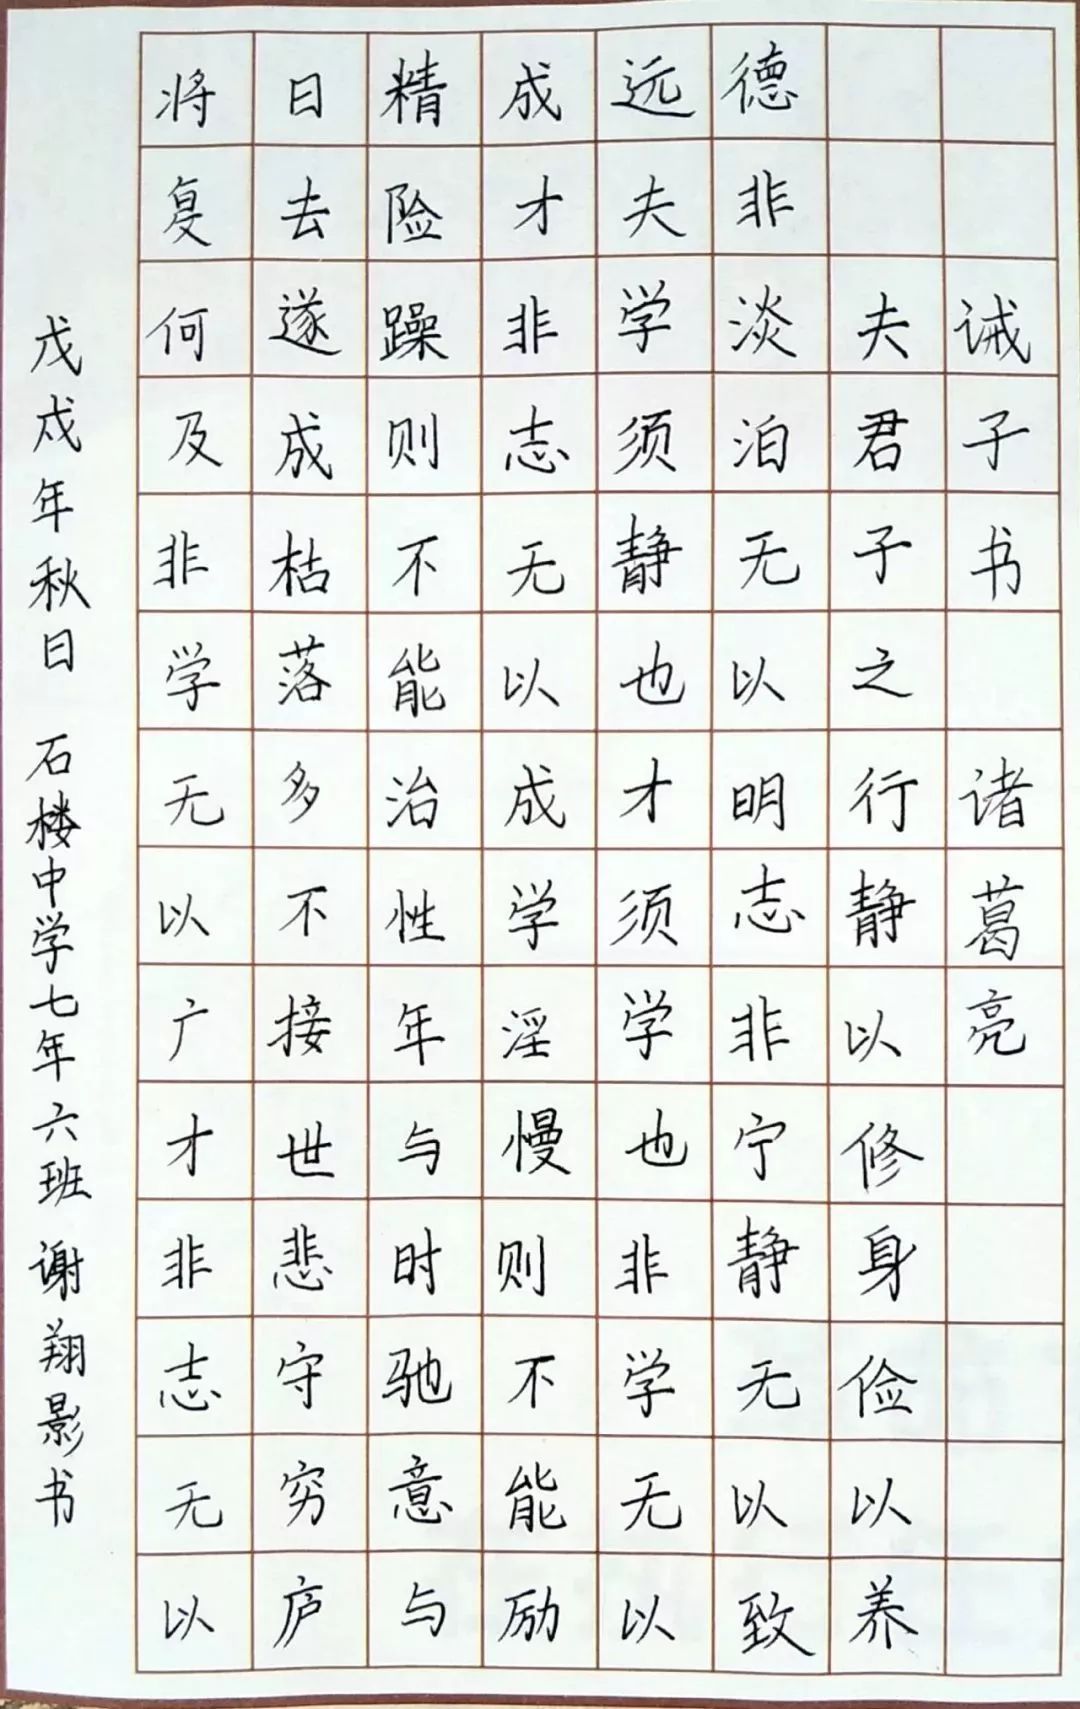 诫子书 诸葛亮
夫君子之行静以修身俭以养
德非淡泊无以明志非宁静无以致
远夫学须静也才须学也非学无以
成才非志无以成学淫慢则不能励
精险躁则不能治性年与时驰意与
日去遂成枯落多不接世悲守穷庐
将复何及非学无以广才非志无以
戊戌年秋日 石楼中学七年六班 谢翔影书